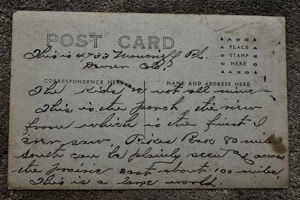 POST CARD
PLACE
STAMP
HERE
This is 4733 Moncrieff Pl.
Denver Colo.
CORRESPONDENCE HERE
NAME AND ADDRESS HERE
The Kids are not all mine.
This is the porch the view
from which is the finest I
ever saw. Pikes Peak 80 miles
south can be plainly seen and across
the prairie East about 100 miles.
This is a large world.